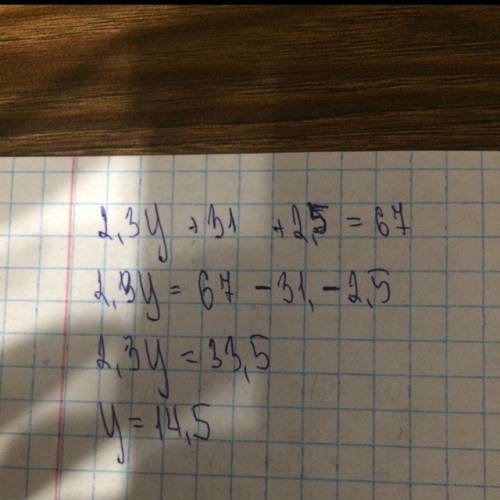 2,3y + 31 + 2,5 = 67
2,3y = 67 - 31, - 2,5
2,3y = 33,5
y = 14,5